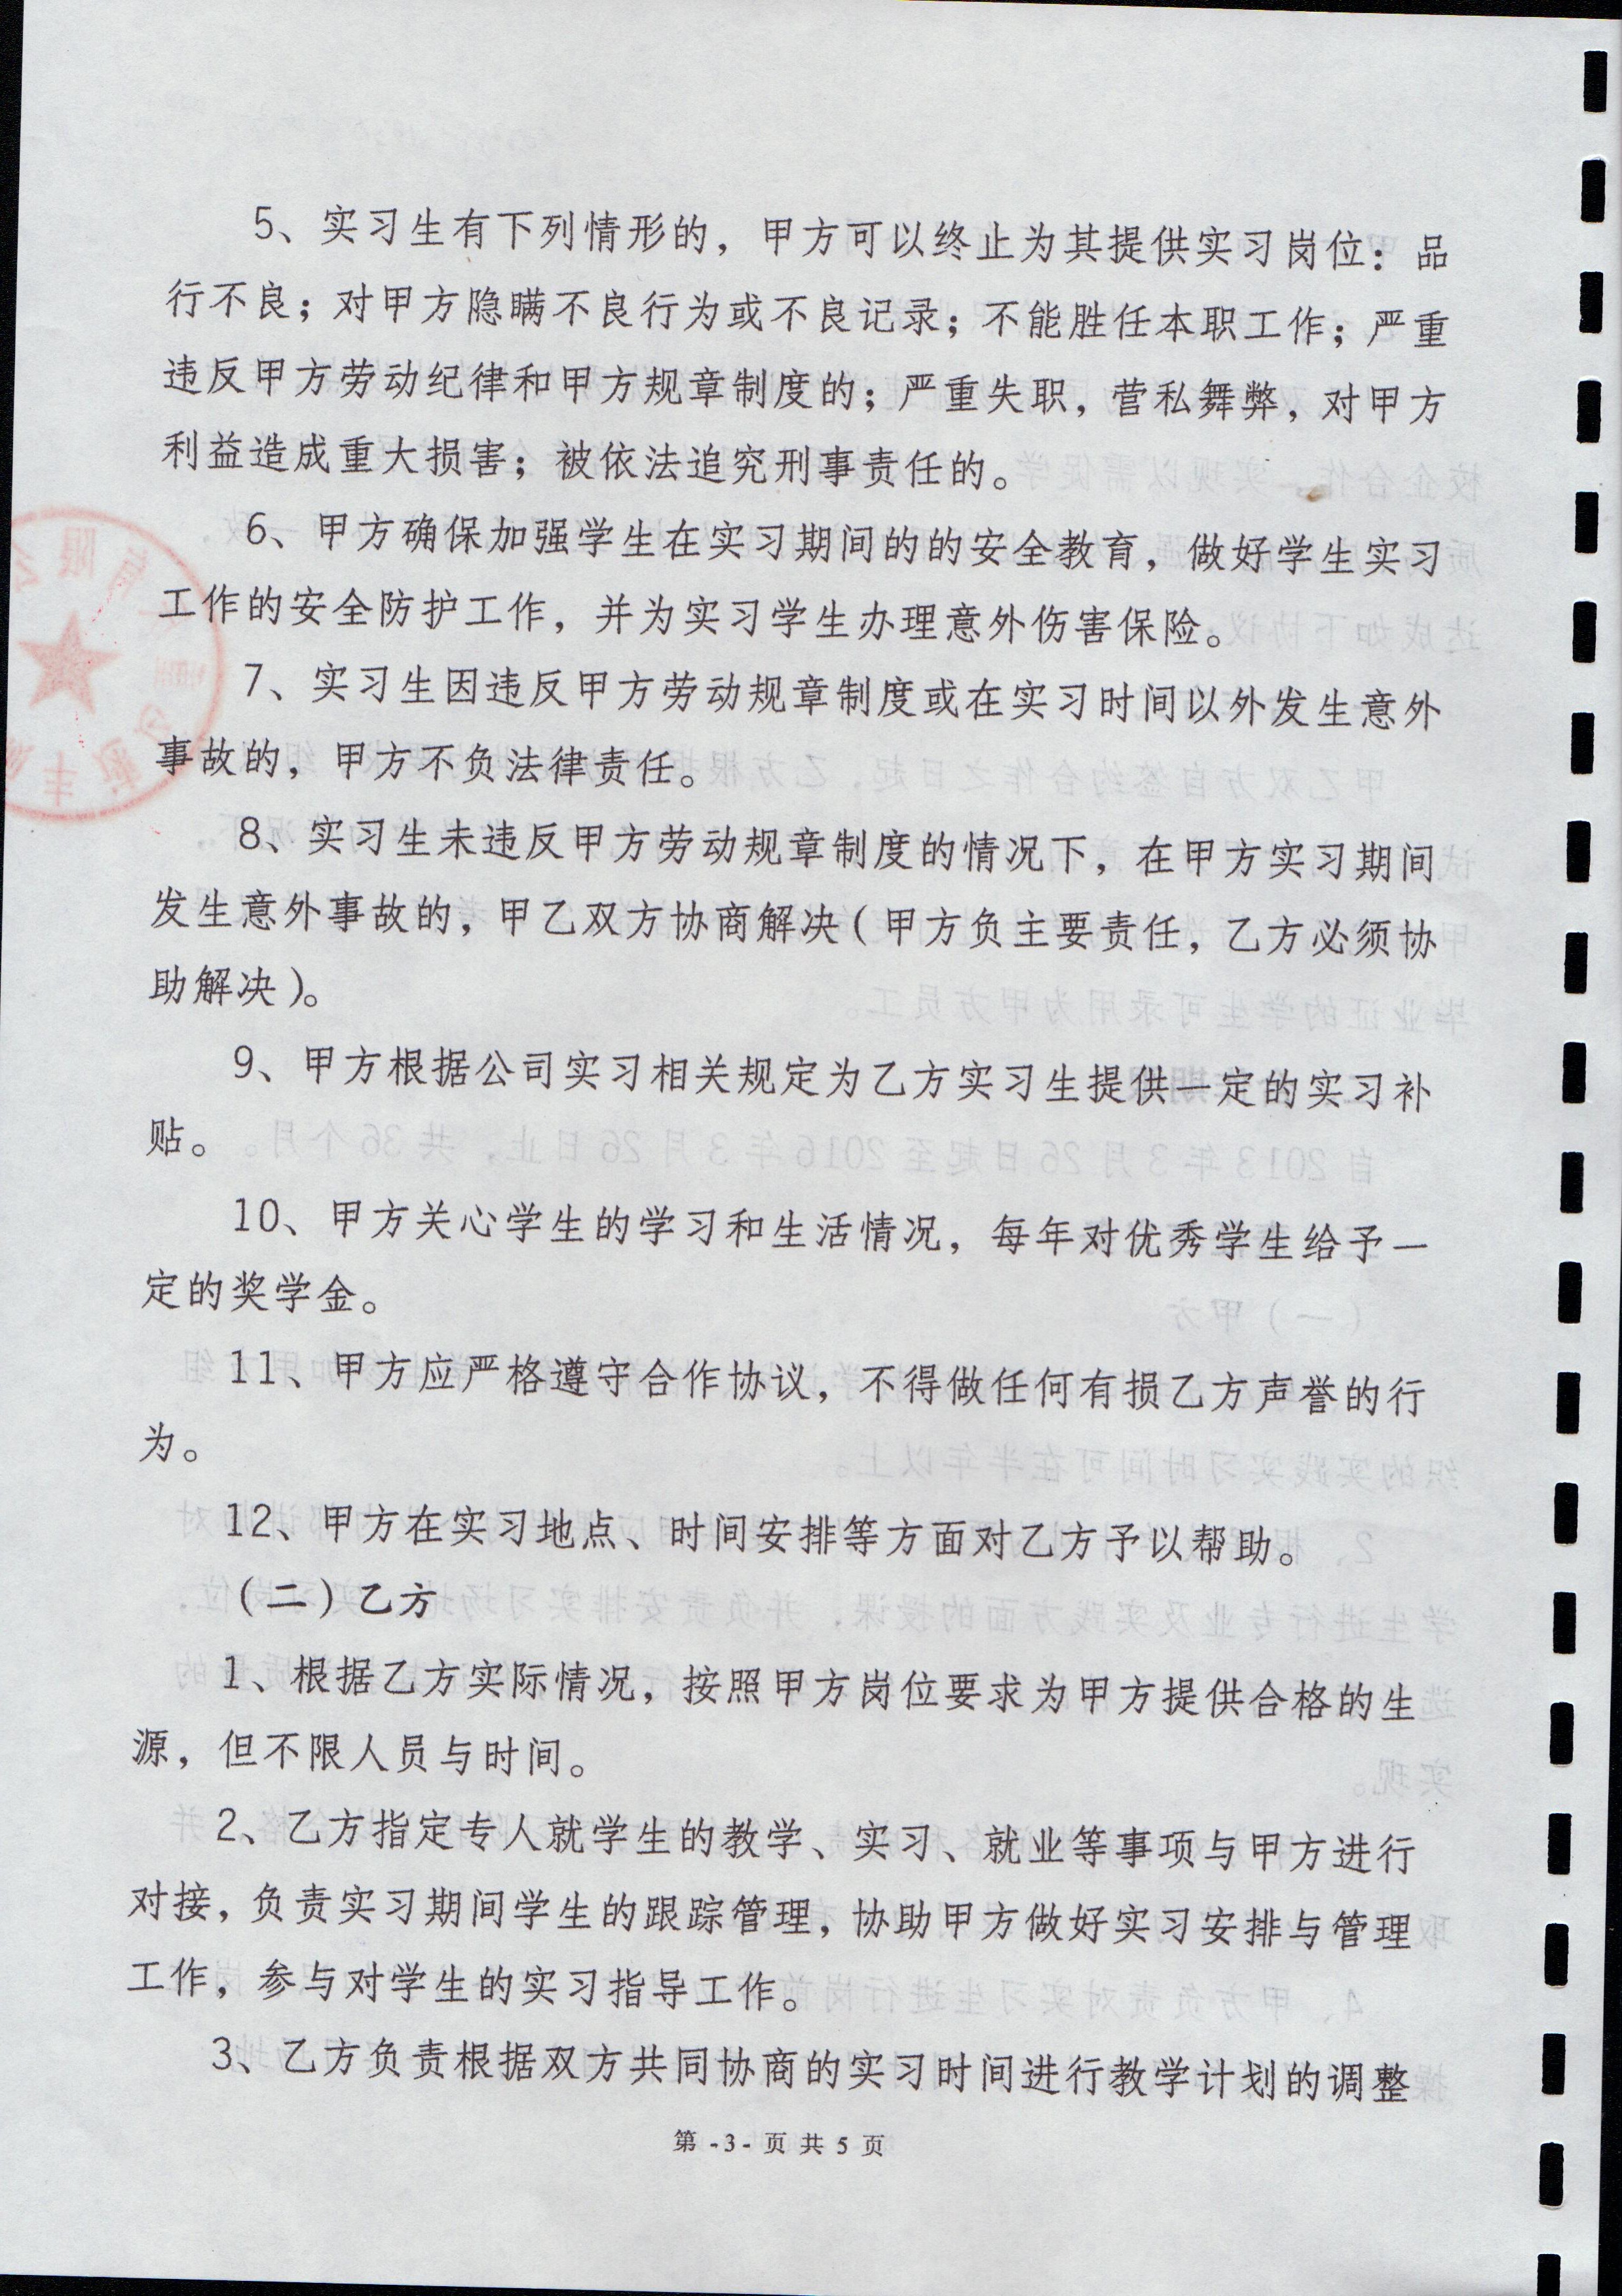 5、实习生有下列情形的，甲方可以终止为其提供实习岗位：品
行不良；对甲方隐瞒不良行为或不良记录；不能胜任本职工作；严重
违反甲方劳动纪律和甲方规章制度的；严重失职，营私舞弊，对甲方
利益造成重大损害；被依法追究刑事责任的。
6、甲方确保加强学生在实习期间的的安全教育，做好学生实习
工作的安全防护工作，并为实习学生办理意外伤害保险。
7、实习生因违反甲方劳动规章制度或在实习时间以外发生意外
事故的，甲方不负法律责任。
8、实习生未违反甲方劳动规章制度的情况下，在甲方实习期间
发生意外事故的，甲乙双方协商解决（甲方负主要责任，乙方必须协
助解决）。
9、甲方根据公司实习相关规定为乙方实习生提供一定的实习补
贴。
10、甲方关心学生的学习和生活情况，每年对优秀学生给予一
定的奖学金。
11、甲方应严格遵守合作协议，不得做任何有损乙方声誉的行
为。
12、甲方在实习地点、时间安排等方面对乙方予以帮助。
（二）乙方
1、根据乙方实际情况，按照甲方岗位要求为甲方提供合格的生
源，但不限人员与时间。
2、乙方指定专人就学生的教学、实习、就业等事项与甲方进行
对接，负责实习期间学生的跟踪管理，协助甲方做好实习安排与管理
工作，参与对学生的实习指导工作。
3、乙方负责根据双方共同协商的实习时间进行教学计划的调整
第 -3- 页 共 5 页